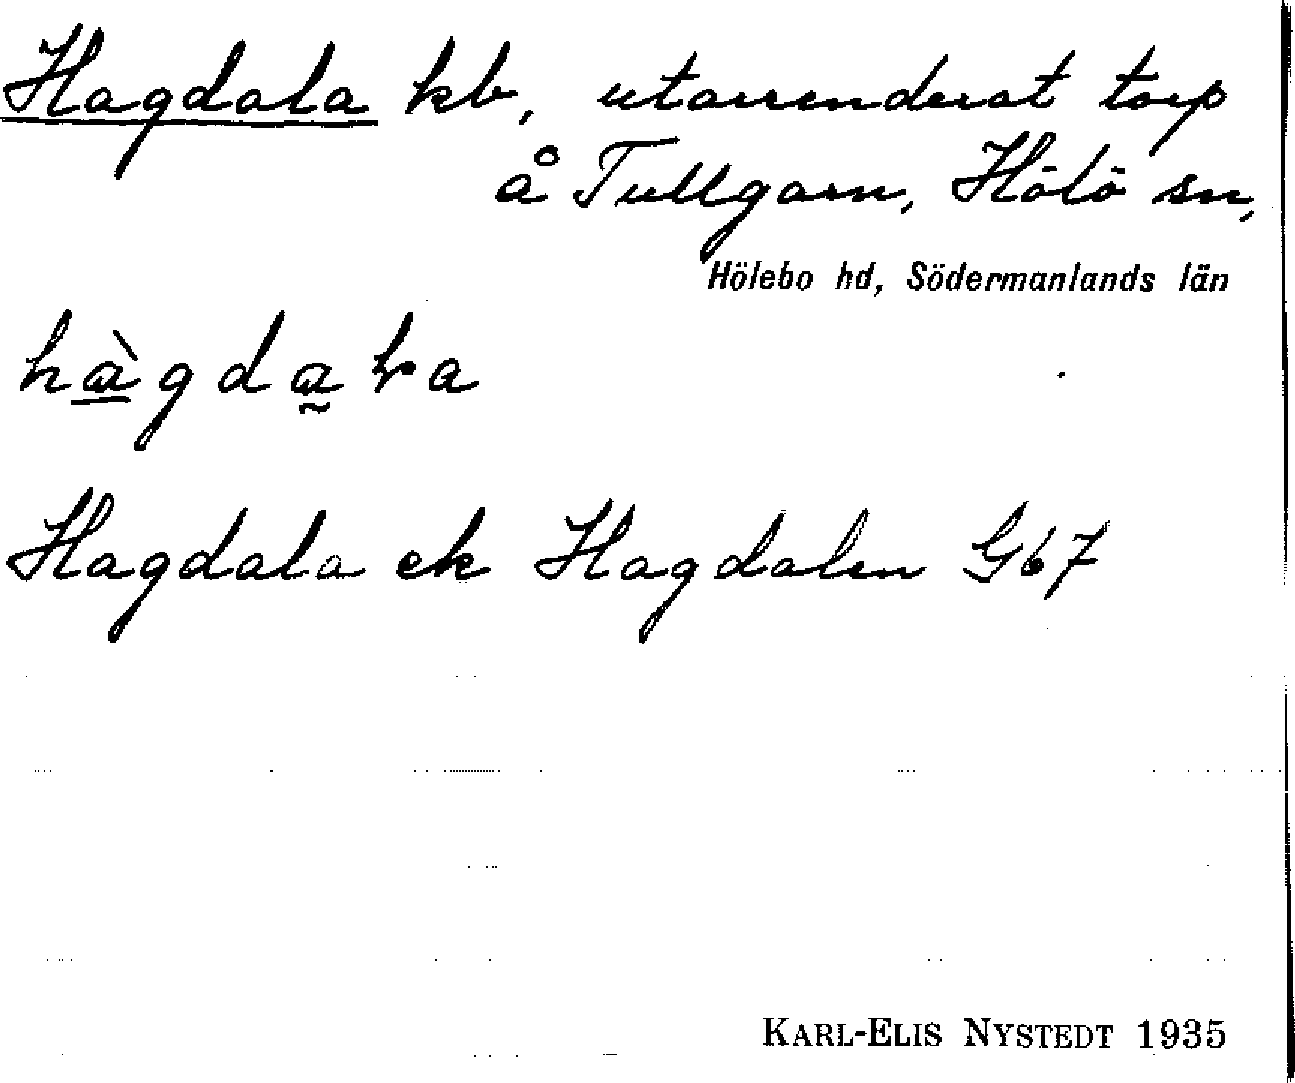 Hagdala kb, utarrenderat torp
å Tullgarn, Hölö sn,
Hölebo hd, Södermanlands län
Hagdala ek Hagdalen G67
KARL-ELIS NYSTEDT 1935